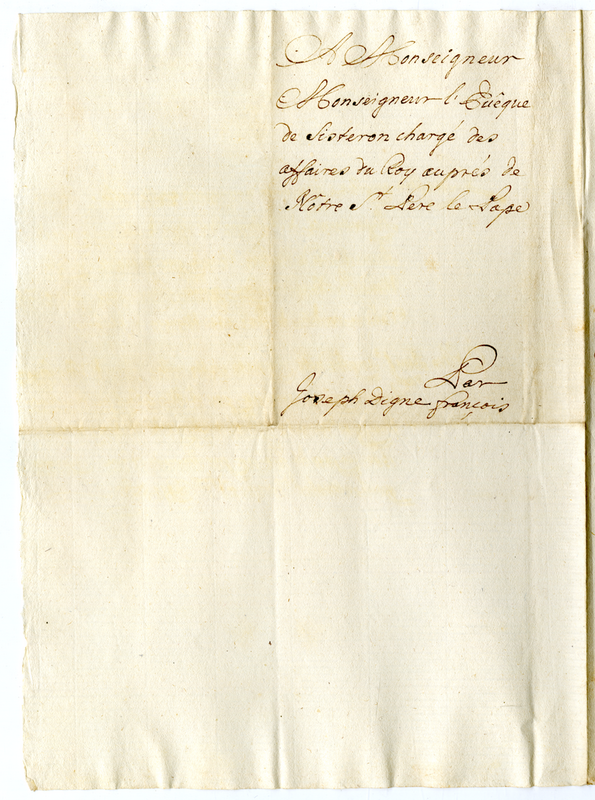 A Monseigneur
Monseigneur l'Evêque
de Sisteron chargé des
affaires du Roy auprés de
Nôtre St. Pere le Pape
Par
Joseph Digne françois